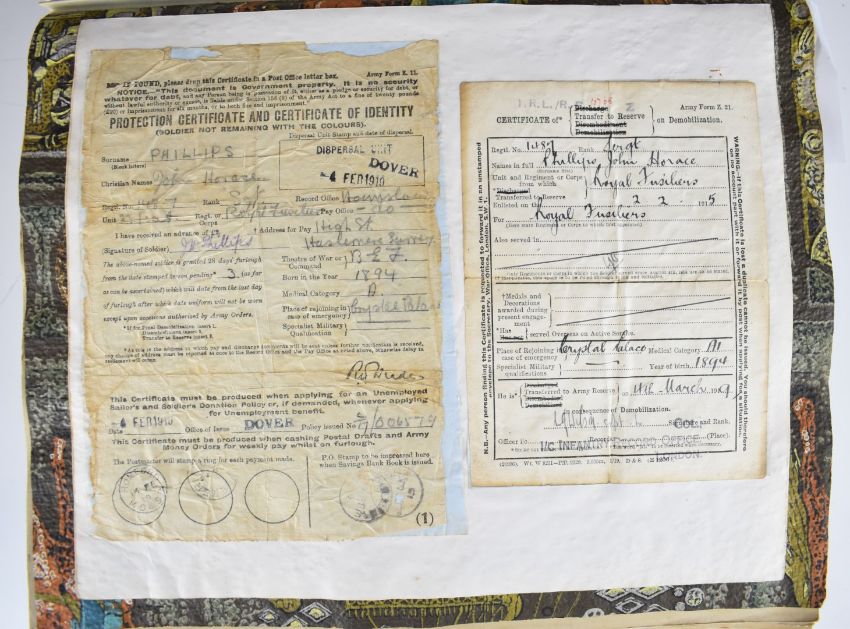 IF FOUND, please drop this Certificate in a Post Office letter box. Army Form Z. 11.
NOTICE.—"This document is Government property. It is no security
whatever for debt, and any Person being in possession of it, either as a pledge or security for debt, or
without lawful authority or excuse, is liable under Section 156 (9) of the Army Act to a fine of twenty pounds
(£20) or imprisonment for six months, or to both fine and imprisonment."
PROTECTION CERTIFICATE AND CERTIFICATE OF IDENTITY
(SOLDIER NOT REMAINING WITH THE COLOURS).
Dispersal Unit Stamp and date of dispersal.
Surname PHILLIPS
(Block letters)
DISPERSAL UNIT
DOVER
4 FEB 1919
Christian Names John Horace
Regtl. No. 1487 Rank Sgt Record Office Hounslow
Unit Regt. or Corps Royal Fusiliers Pay Office do
I have received an advance of £2 * Address for Pay High St
J H Phillips Haslemere Surrey
(Signature of Soldier)
The above-named soldier is granted 28 days' furlough
from the date stamped hereon pending* 3 (as far
as can be ascertained) which will date from the last day
of furlough after which date uniform will not be worn
except upon occasions authorised by Army Orders.
Theatre of War or Command B.E.F.
Born in the Year 1894
Medical Category A
Place of rejoining in case of emergency Crystal Palace
Specialist Military Qualification
*If for Final Demobilization insert 1.
Disembodiment insert 2.
Transfer to Reserve insert 3.
*As this is the address to which pay and discharge documents will be sent unless further notification is received,
any change of address must be reported to once to the Record Office and the Pay Office as noted above, otherwise delay in
settlement will occur.
This Certificate must be produced when applying for an Unemployed
Sailor's and Soldier's Donation Policy or, if demanded, whenever applying
for Unemployment benefit.
Date 4 FEB 1919 Office of Issue DOVER Policy issued No.
This Certificate must be produced when cashing Postal Drafts and Army
Money Orders for weekly pay whilst on furlough.
The Postmaster will stamp a ring for each payment made.
P.O. Stamp to be impressed here
when Savings Bank Book is issued.
(1)
I.R.L./R. Z
Discharge
CERTIFICATE of* Transfer to Reserve on Demobilization. Army Form Z. 21.
Disembodiment
Demobilization
Regtl. No. 1487 Rank Sergt
Names in full Phillips John Horace
(Surname first)
Unit and Regiment or Corps from which Royal Fusiliers
*Discharged
Transferred to Reserve
Enlisted on the 2 2 1915
For Royal Fusiliers
(Here state Regiment or Corps to which first appointed)
Also served in
*Medals and
Decorations
awarded during
present engagement
*Has
served Overseas on Active Service.
Place of Rejoining in case of emergency Crystal Palace Medical Category A1
Specialist Military qualifications Year of birth 1894
Discharged
He is Transferred to Army Reserve on 4th March 1919
Disembodied
Demobilized
in consequence of Demobilization.
Signature and Rank.
COL.
Officer i/c Records. (Place).
I/C INFANTRY RECORD OFFICE
LONDON.
WARNING.—If this Certificate is lost a duplicate cannot be issued. You should therefore
on no account part with it or forward it by post when applying for a situation.
N.B. Any person finding this Certificate is requested to forward it in an unstamped
envelope to the Secretary, War Office, London, S.W. 1.